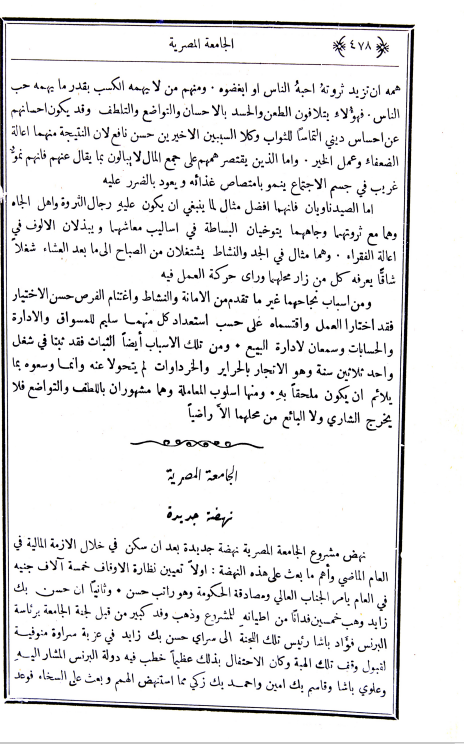 الجامعة المصرية ٤٧٨
همه ان تزيد ثروتهُ احبهُ الناس او ابغضوه ٠ ومنهم من لا يهمه الكسب بقدر ما يهمه حب
الناس ٠ فهؤلاء يتلافون الطعن والحسد بالاحسان والتواضع والتلطف وقد يكون احسانهم
عن احساس ديني التماسًا للثواب وكلا السببين الاخيرين حسن نافع لان النتيجة منهما اعالة
الضعفاء وعمل الخير ٠ واما الذين يقتصر همهم على جمع المال لا يبالون بما يقال عنهم فانهم نموٌّ
غريب في جسم الاجتماع ينمو بامتصاص غذائه و يعود بالضرر عليه
اما الصيدناويان فانهما افضل مثال لما ينبغي ان يكون عليه رجال الثروة واهل الجاه
وهما مع ثروتهما وجاههما يتوخيان البساطة في اساليب معاشهما و يبذلان الالوف في
اعالة الفقراء ٠ وهما مثال في الجد والنشاط يشتغلان من الصباح الى ما بعد العشاء شغلاً
شاقًا يعرفه كل من زار محلهما وراى حركة العمل فيه
ومن اسباب نجاحهما غير ما تقدم من الامانة والنشاط واغتنام الفرص حسن الاختيار
فقد اختارا العمل واقتسماه على حسب استعداد كل منهما سليم للمسواق والادارة
والحسابات وسمعان لادارة البيع ٠ ومن تلك الاسباب أيضاً الثبات فقد ثبتا في شغل
واحد ثلاثين سنة وهو الاتجار بالحراير والخرداوات لم يتحولا عنه وانما وسعوه بما
يلائم ان يكون ملحقاً به ٠ ومنها اسلوب المعاملة وهما مشهوران باللطف والتواضع فلا
يخرج الشاري ولا البائع من محلهما الاَّ راضياً
الجامعة المصرية
نهضة جديدة
نهض مشروع الجامعة المصرية نهضة جديدة بعد ان سكن في خلال الازمة المالية في
العام الماضي وأهم ما بعث على هذه النهضة : اولاً تعيين نظارة الاوقاف خمسة آلاف جنيه
في العام بامر الجناب العالي ومصادقة الحكومة وهو راتب حسن ٠ وثانيًا ان حسن بك
زايد وهب خمسين فدانًا من اطيانه للمشروع وذهب وفد كبير من قبل لجنة الجامعة برئاسة
البرنس فؤاد باشا رئيس تلك اللجنة الى سراي حسن بك زايد في عزبة سراوة منوفية
لقبول وقف تلك الهبة وكان الاحتفال بذلك عظيماً خطب فيه دولة البرنس المشار اليه
وعلوي باشا وقاسم بك امين واحمد بك زكي مما استنهض الهمم و بعث على السخاء فوعد